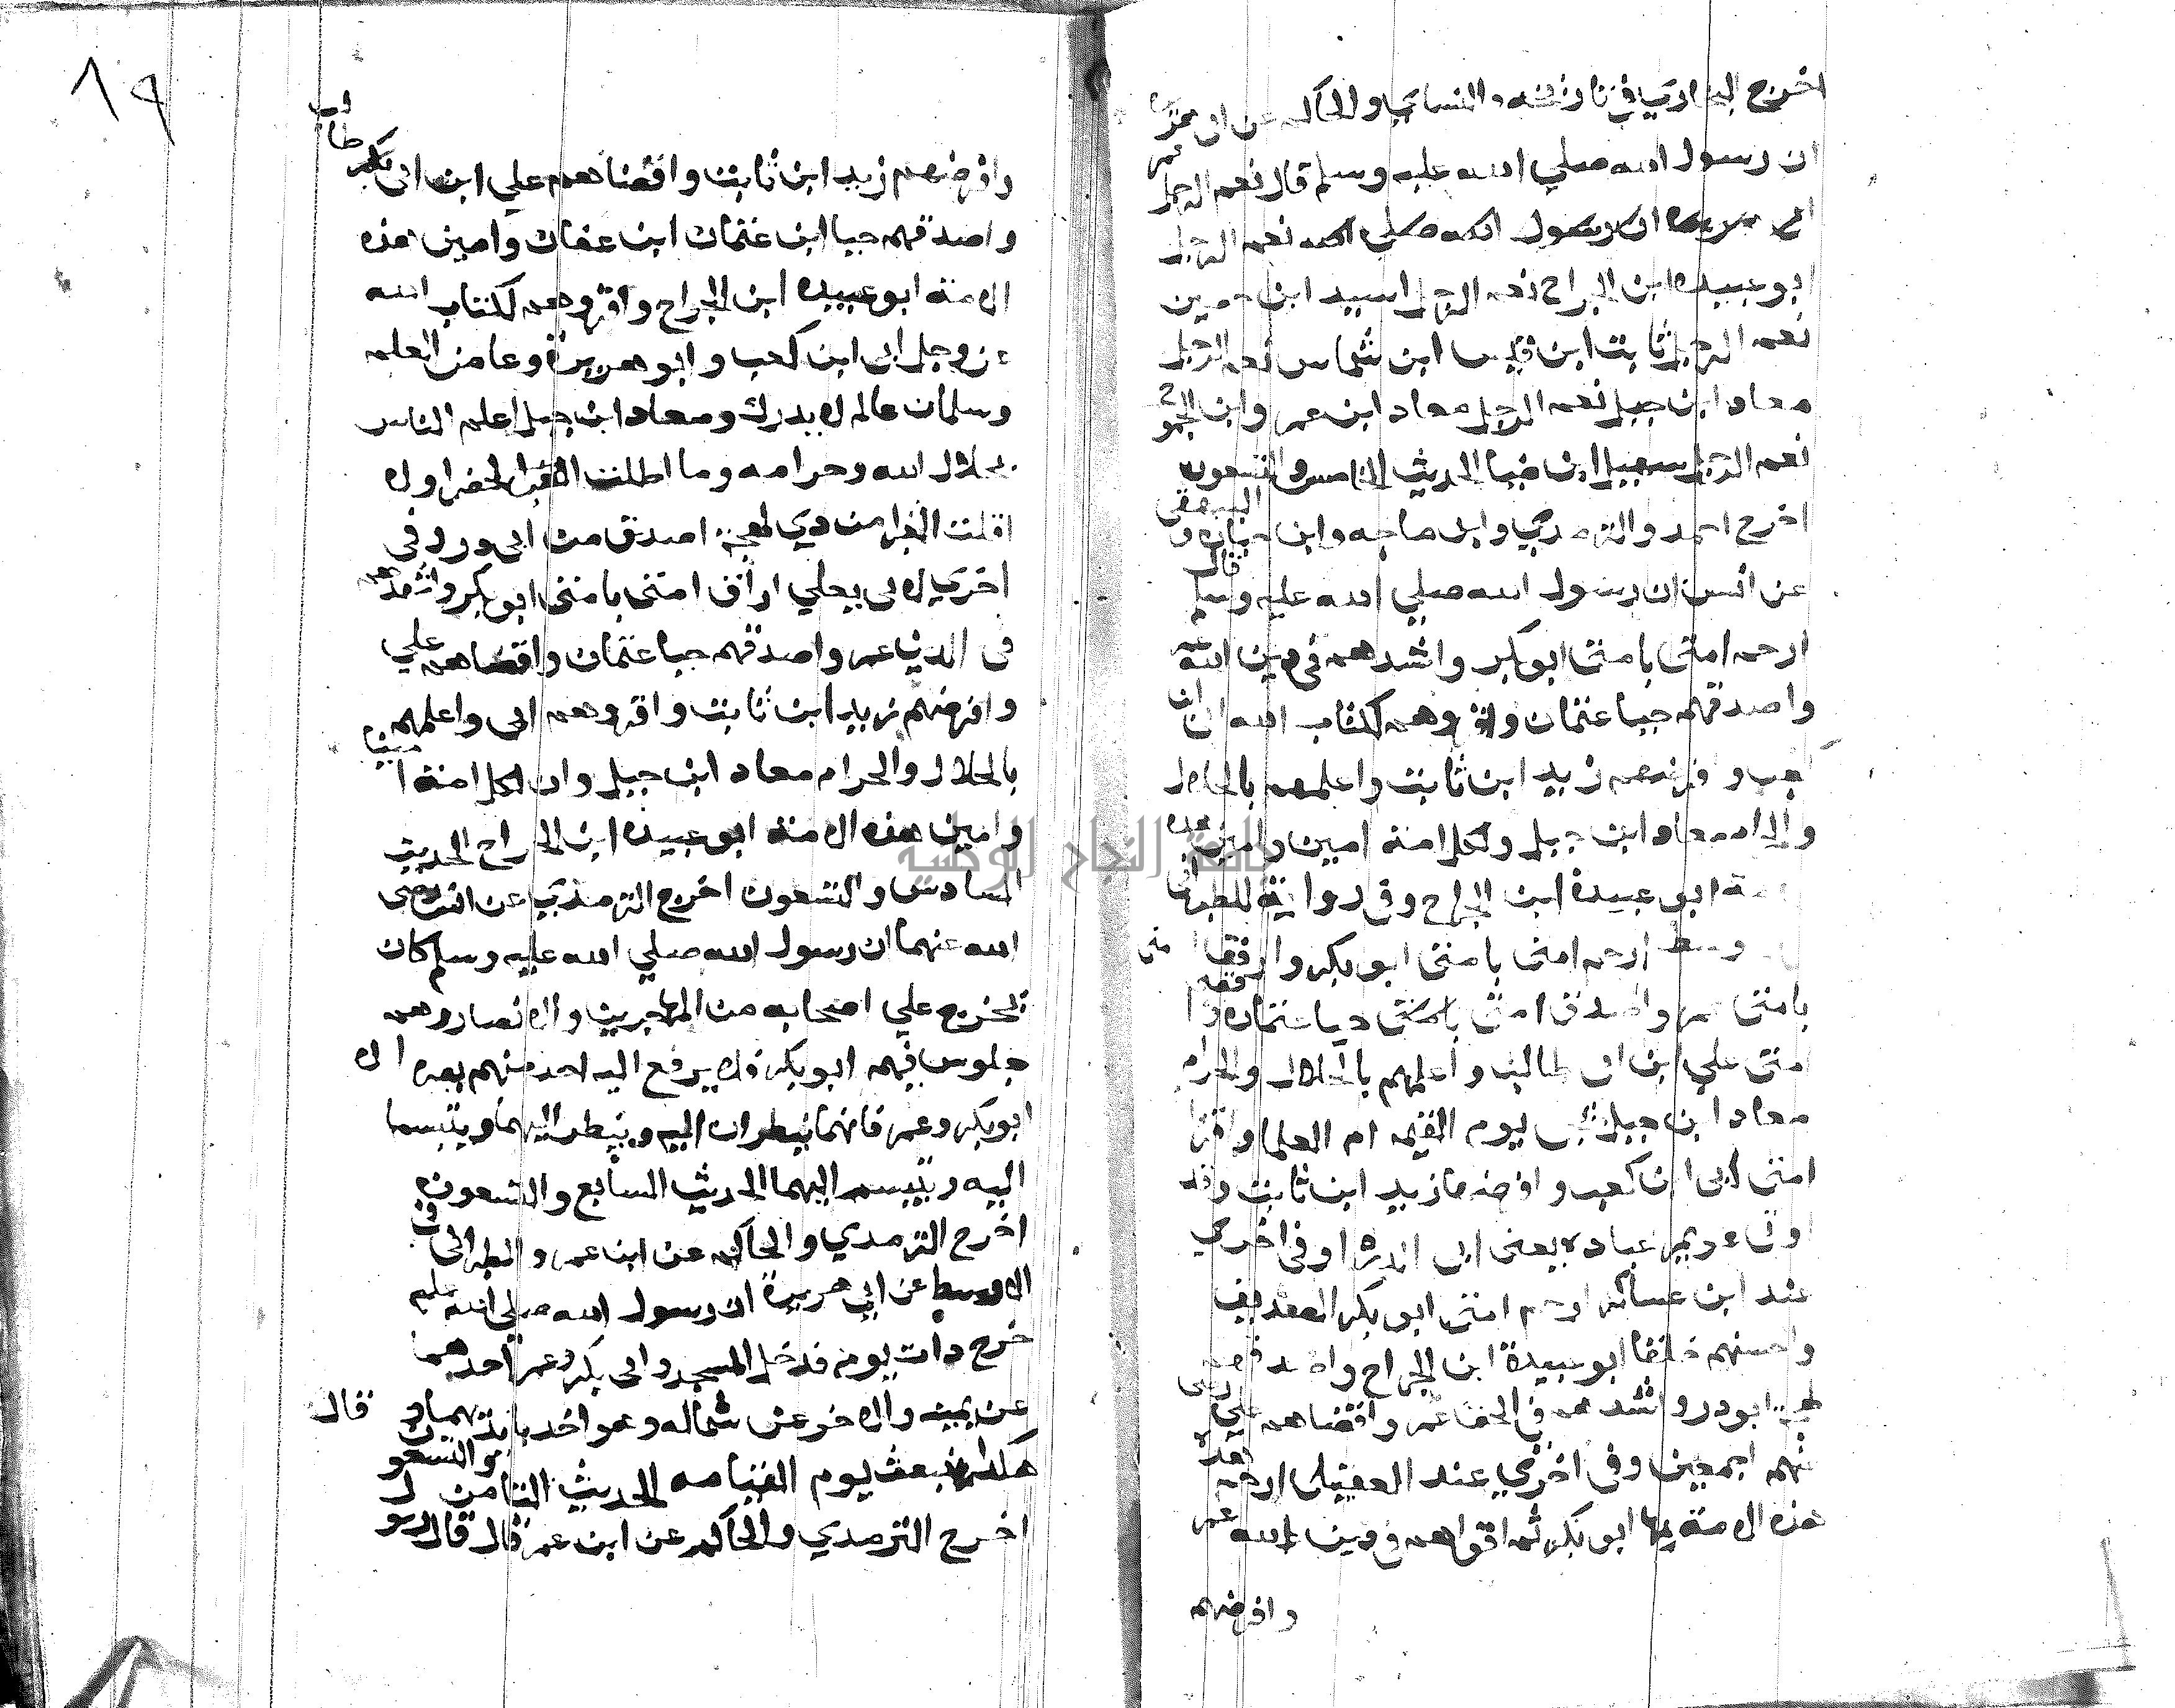 اخرج البخاري في تاريخه والنسائي والحاكم عن ابي
ان رسول الله صلي الله عليه وسلم قال نعم الرجل عمر
ان رسول الله صلي الله نعم الرجل
ابو عبيده ابن الجراح نعم الرجل اسيد ابن
نعم الرجل ثابت ابن قيس ابن شماس نعم الرجل
معاد ابن جبل نعم الرجل معاد ابن عمر وابن الجموح
نعم الرجل سهيل ابن الحديث الخامس والتسعون
اخرج احمد والترمدي وابن ماجه وابن حبان و البيهقي
عن انس ان رسول الله صلي الله عليه وسلم قال
ارحم امتي بامتي ابو بكر واشدهم في دين الله عمر
واصدقهم حيا عتمان واقروهم لكتاب الله ابي ابن
كعب و فرضهم زيد ابن ثابت واعلمهم بالحلال
والحرام معاد ابن جبل ولكل امة امين وامين هده
مة ابو عبيدة ابن الجراح وفي رواية للطبراني
وسط ارحم امتي بامتي ابو بكر وارفق امتي
بامتي عمر واصدق امتي بامتي حيا عتمان وا قضى
امتي علي ابن ابي طالب واعلمهم بالحلال والحرام
معاد ابن جبل يوم القيمه ام العلما واقرا
امتي ابي ابن كعب وافرضها زيد ابن ثابت وقد
اوتي عويمر عباده يعني ابي الدردا وفي اخري
عند ابن عساكر ارحم امتي ابو بكر الصديق
واحسنهم خلقا ابو عبيدة ابن الجراح واصدقهم
لهجة ابودر واشدهم في الحق عمر واقضاهم علي رضى
عنهم اجمعين وفي اخري عند العقيلي ارحم هده
هده الامة بها ابو بكر ثم اقواهم في دين الله عمر
وافرضهم
٨٩
وافرضهم زيد ابن ثابت واقضاهم علي ابن ابي طالب
واصدقهم حيا ابن عتمان ابن عفان وامين هده
الامة ابو عبيده ابن الجراح واقروهم لكتاب الله
عز وجل ابي ابن كعب وابو هريرة وعا من العلم
وسلمان عالم لا يدرك ومعاد ابن جبل اعلم الناس
بحلال الله وحرامه وما اطلت الخضرا ولا
اقلت الغبرا من دي لهجة اصدق من ابي در وفي
اخري لابي يعلي اراف امتي بامتي ابو بكر واشدهم
في الدين عمر واصدقهم حيا عتمان واقضاهم علي
وافرضهم زيد ابن ثابت واقروهم ابي واعلمهم
بالحلال والحرام معاد ابن جبل وان لكل امة امينا
وامين هده الامة ابو عبيده ابن الجراح الحديث
السادس والتسعون اخرج الترمدي عن انس رضى
الله عنهما ان رسول الله صلي الله عليه وسلم كان
يخرج علي اصحابه من المهاجرين والانصار وهم
جلوس فيهم ابو بكر فلا يرفع اليه احد منهم بصره الا
ابو بكر وعمر فانهما ينطران اليه وينطر اليهما ويتبسما
اليه ويتبسم اليهما الحديث السابع والتسعون
اخرج الترمدي والحاكم عن ابن عمر والطبراني في
الاوسط عن ابي هريرة ان رسول الله صلي الله سلم
خرج دات يوم فدخل المسجد وابي بكر وعمر احدهما
عن يمينه والاخر عن شماله وهو اخد بايديهما وقال
هكدا نبعث يوم القيامه الحديث التامن والتسعون
اخرج الترمدي والحاكم عن ابن عمر قال قال رسول
جامعة النجاح الوطنية